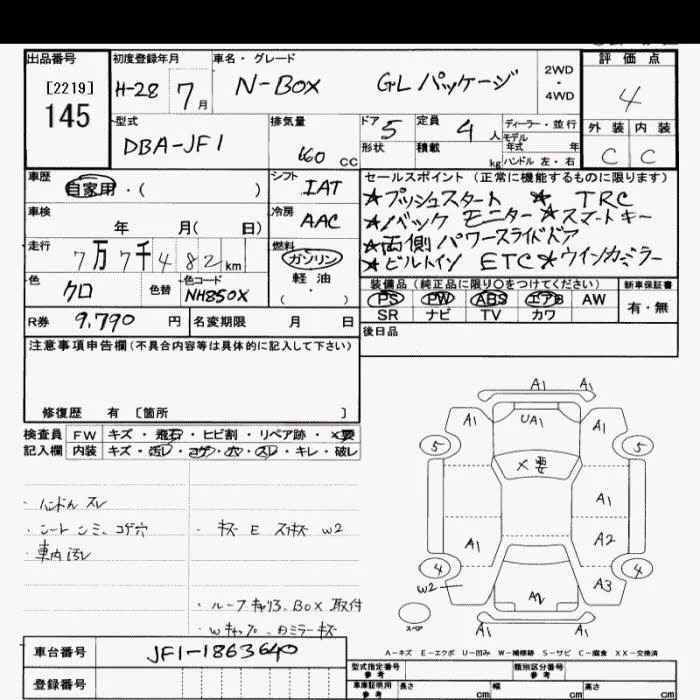 出品番号 初度登録年月 車名・グレード 評価点
[2219] 145
H-28 7月 N-BOX GLパッケージ 2WD・4WD 4
型式 DBA-JF1 排気量 660 CC
ドア 5 定員 4人 ディーラー・並行
形状 積載 kg モデル年式 年 ハンドル 左・右
外装 内装
C C
車歴 自家用・( )
シフト IAT
セールスポイント (正常に機能するものに限ります)
★プッシュスタート ★ TRC
★バックモニター★スマートキー
★両側パワースライドドア
★ビルトイン ETC★ウインカミラー
車検 年 月( 日)
冷房 AAC
走行 7万7千482km
燃料 ガソリン 軽油 ( ・ )
色 クロ 色替 色コード NH850X
装備品 (純正品に限り○をつけてください) 新車保証書
PS PW ABS エアB AW 有・無
SR ナビ TV カワ
R券 9,790円 名変期限 月 日
後日品
注意事項申告欄(不具合内容等は具体的に記入して下さい)
修復歴 有 [箇所 ]
検査員 FW キズ・飛石・ヒビ割・リペア跡・×要
記入欄 内装 キズ・汚レ・コゲ・穴・スレ・キレ・破レ
・ハンドルスレ
・シートシミ、コゲ穴 ・キズ E スリキズ W2
・車内汚レ
・ルーフキャリア、BOX取付
・Wキャップ、カミラーキズ
A1 A1
A1 UA1 A1
5 5
×要
A1
A1 A2
4 4
W2 A2 A3
スペア
A1 A1
A-キズ E-エクボ U-凹み W-補修跡 S-サビ C-腐食 XX-交換済
車台番号 JF1-1863640
型式指定番号 参考 類別区分番号 参考
登録番号
車庫証明用 参考 長さ cm 幅 cm 高さ cm